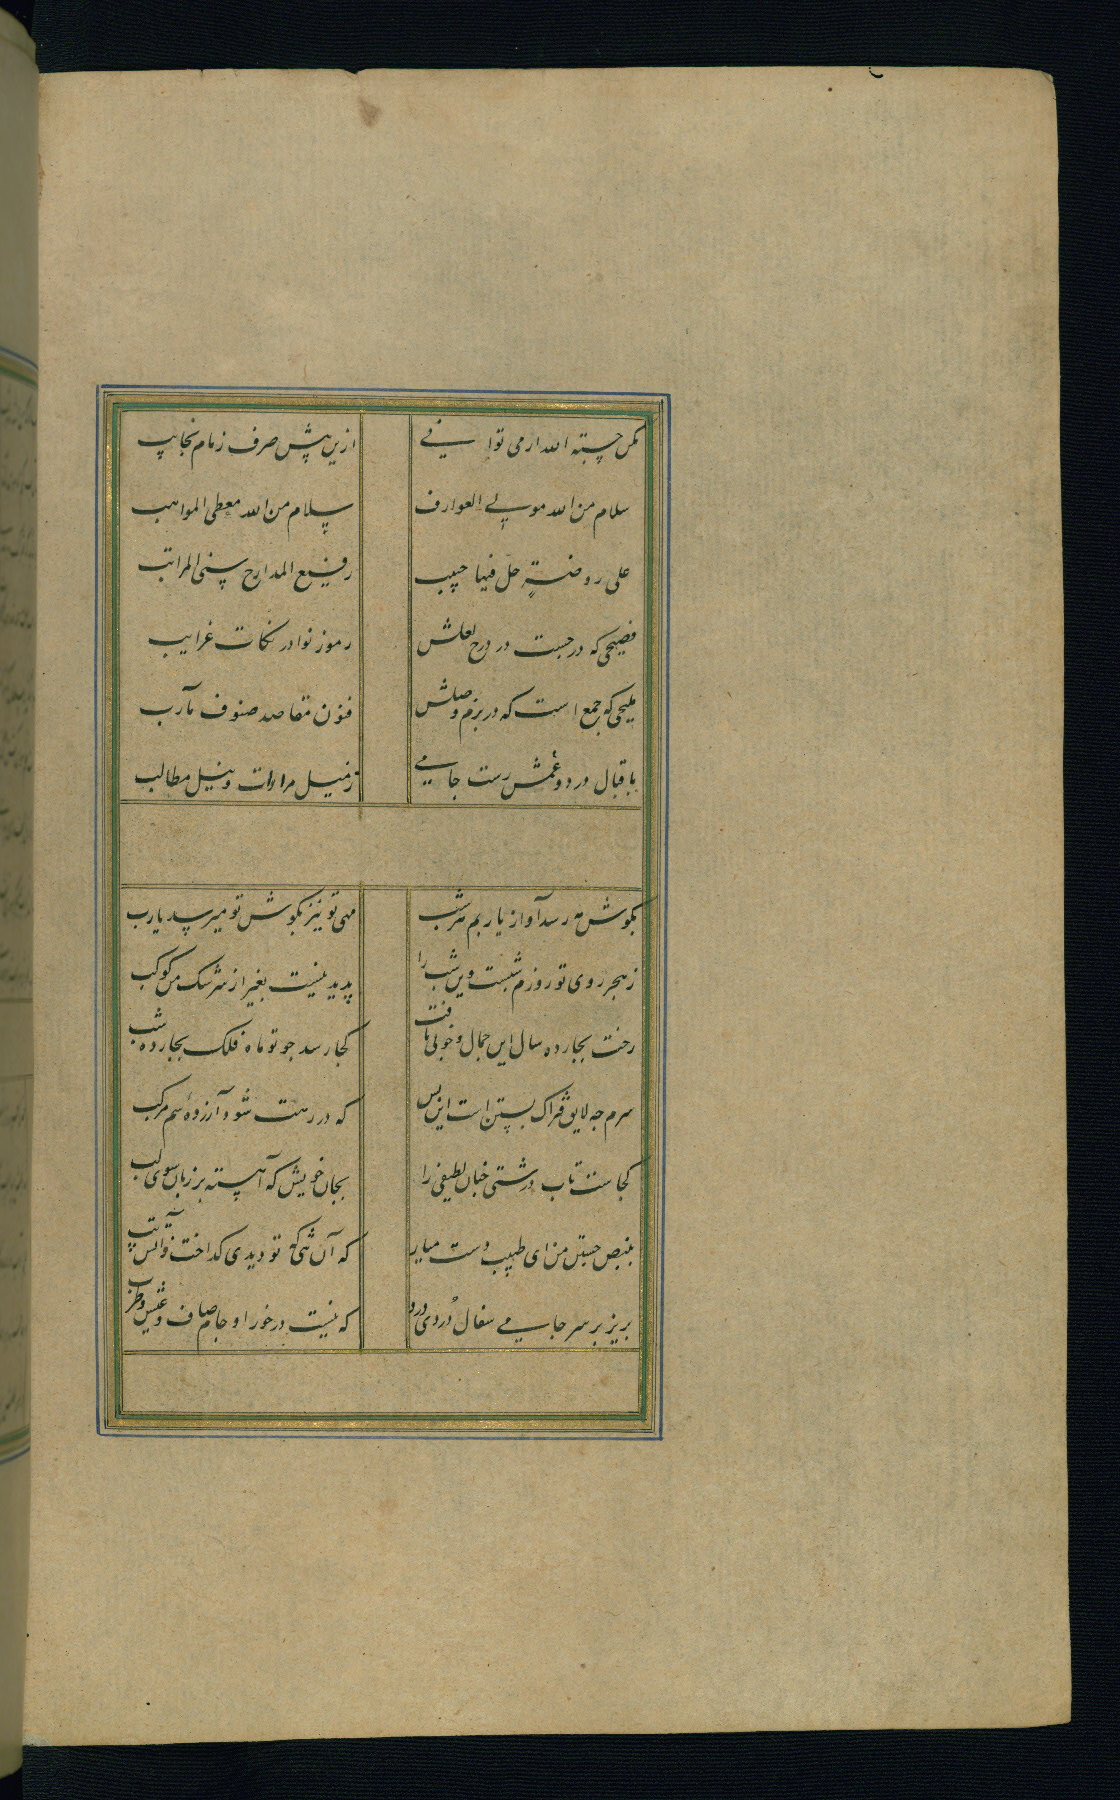 مکن حسبة الله ار می توانی ازین پیش صرف زمام نجایب
سلام من الله مولی العوارف سلام من الله معطی المواهب
علی روضةٍ حلّ فیها حبیب رفیع المدارج سنی المراتب
فصیحی که درجست در درج لعلش رموز نوادر نکات غرایب
ملیحی که جمع است که در بزم وصلش فنون مقاصد صنوف مآرب
باقبال درد و غمش رست جامی ز نیل مرادات و نیل مطالب
بکوش مه رسد آواز یاربم هر شب مهی تو نیز بکوش تو میرسد یارب
ز هجر روی تو روزم شبست وین شب را پدید نیست بغیر از سرشک من کوکب
رخت بچارده سال این جمال و خوبی یافت کجا رسد چو تو ماه فلک بچارده شب
سرم چه لایق فتراک بستن است این بس که در رهت شود آزرده سم مرکب
کجاست تاب درشتی خنان لطیفی را بجان خویش که آهسته بر زبان سوی لب
بنبض جستن من ای طبیب دست میار که آن نئی که تو دیدی کداخت ز آتش تب
بریز بر سر جامی سفال دُردی درد که نیست درخور او جام صاف و عیش و طرب